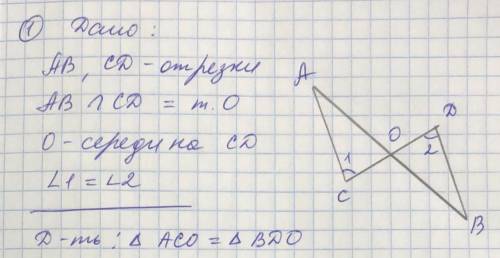 ① Дано:
AB, CD - отрезки
AB ∩ CD = т. O
O - середина CD
∠1 = ∠2
Д-ть: △ ACO = △ BDO
A
D
O
1
2
C
B